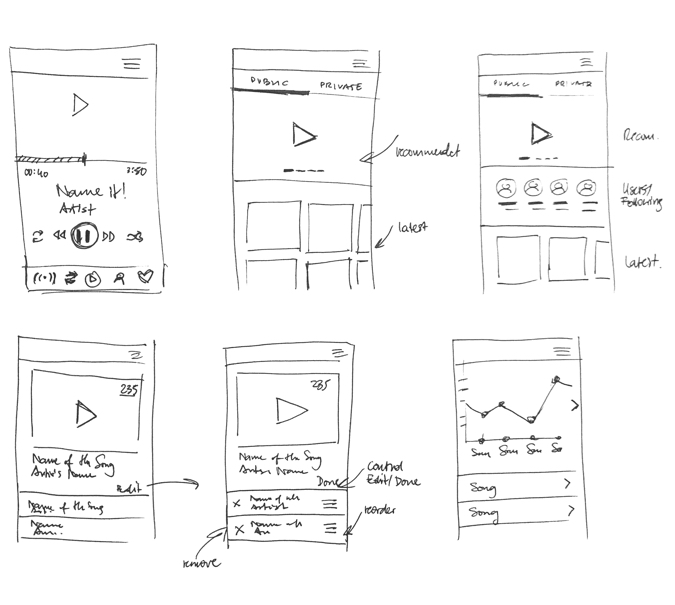 00:40
3:50
Name it!
Artist
PUBLIC PRIVATE
recommended
latest
PUBLIC PRIVATE
Recom.
Users/
Following
Latest.
235
Name of the Song
Artist's Name
Edit
Name of the Song
Name
235
Name of the Song
Artist Name
Done
Control
Edit/Done
Name of the
Artist
Name
reorder
remove
Song
Song